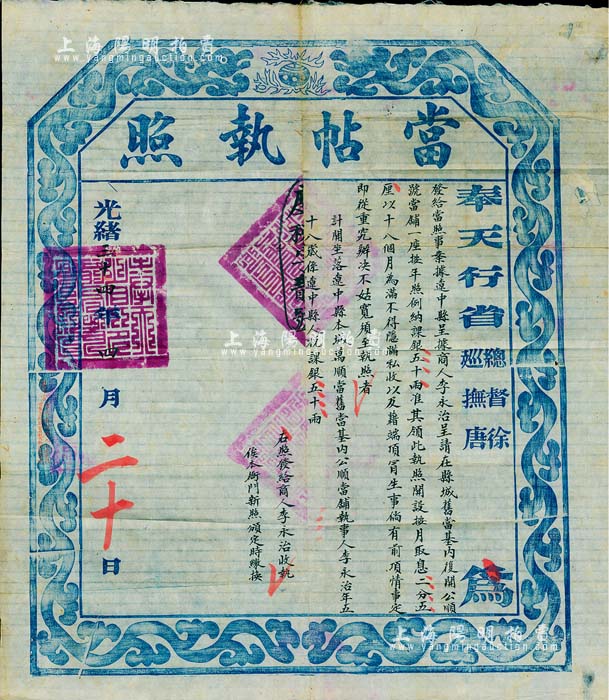 上海陽明拍賣
www.yangmingauction.com
當帖執照
奉天行省總督徐巡撫唐為
發給當照事案據遼中縣呈據商人李永治呈請在縣城舊當基內復開公順
號當鋪一座按年照例納課銀五十兩准其領此執照開設按月取息二分五
厘以十八個月為滿不得隱漏私收以及藉端項冒生事倘有前項情事定
即從重究辦決不姑寬須至執照者
計開坐落遼中縣本城萬順當舊當基內公順當鋪執事人李永治年五
十八歲係遼中縣人完課銀五十兩
右照發給商人李永治收執
俟本衙門新照頒定時繳換
光緒三十四年四月二十日
上海陽明拍賣
www.yangmingauction.com
上海陽明拍賣
www.yangmingauction.com